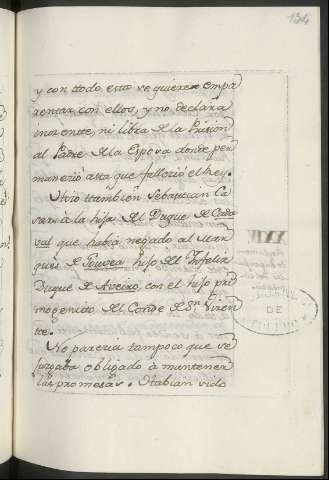 134
y con todo esto se quieren empa
rentar con ellos, y no declara
inocente, ni libra de la Prision
al Padre de la Esposa donde per
maneció asta que falleció el Rey.
Hizo tambien Sebastian Ca
sar à la hija del Duque de Cada
val que habia negado al Mar
ques de Gouvea hijo del Infeliz
Duque de Aveiro, con el hijo pri
mogenito del Conde de Sn. Vicen
te.
No parecia tampoco que se
juzgaba obligado à mantener
las promesas. Habian sido
DE